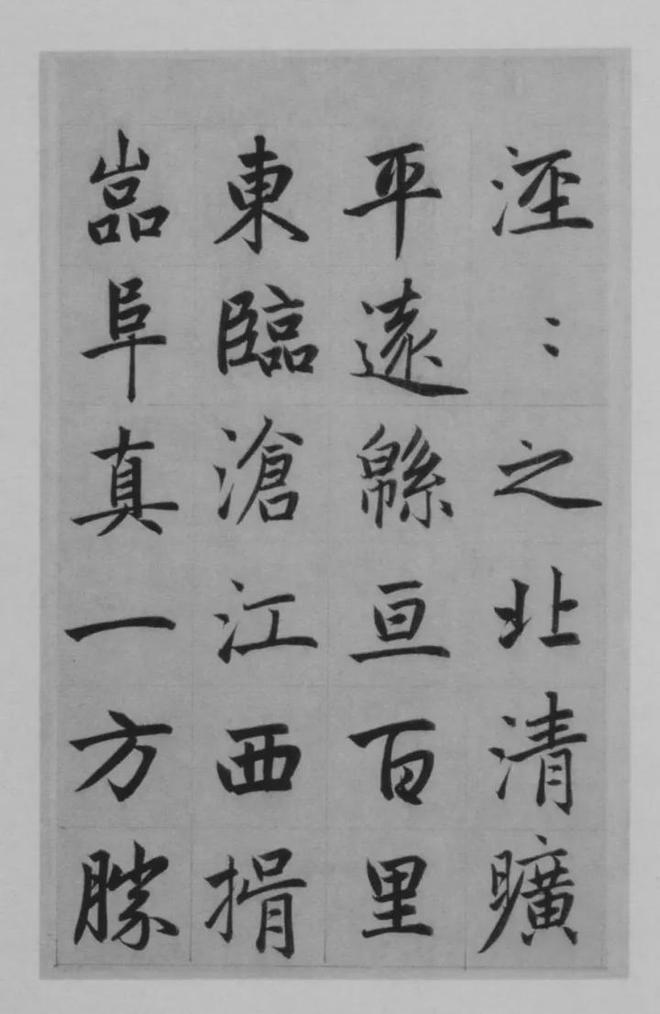 涇：之北清曠
平遠緜亘百里
東臨滄江西揖
嵒阜真一方勝